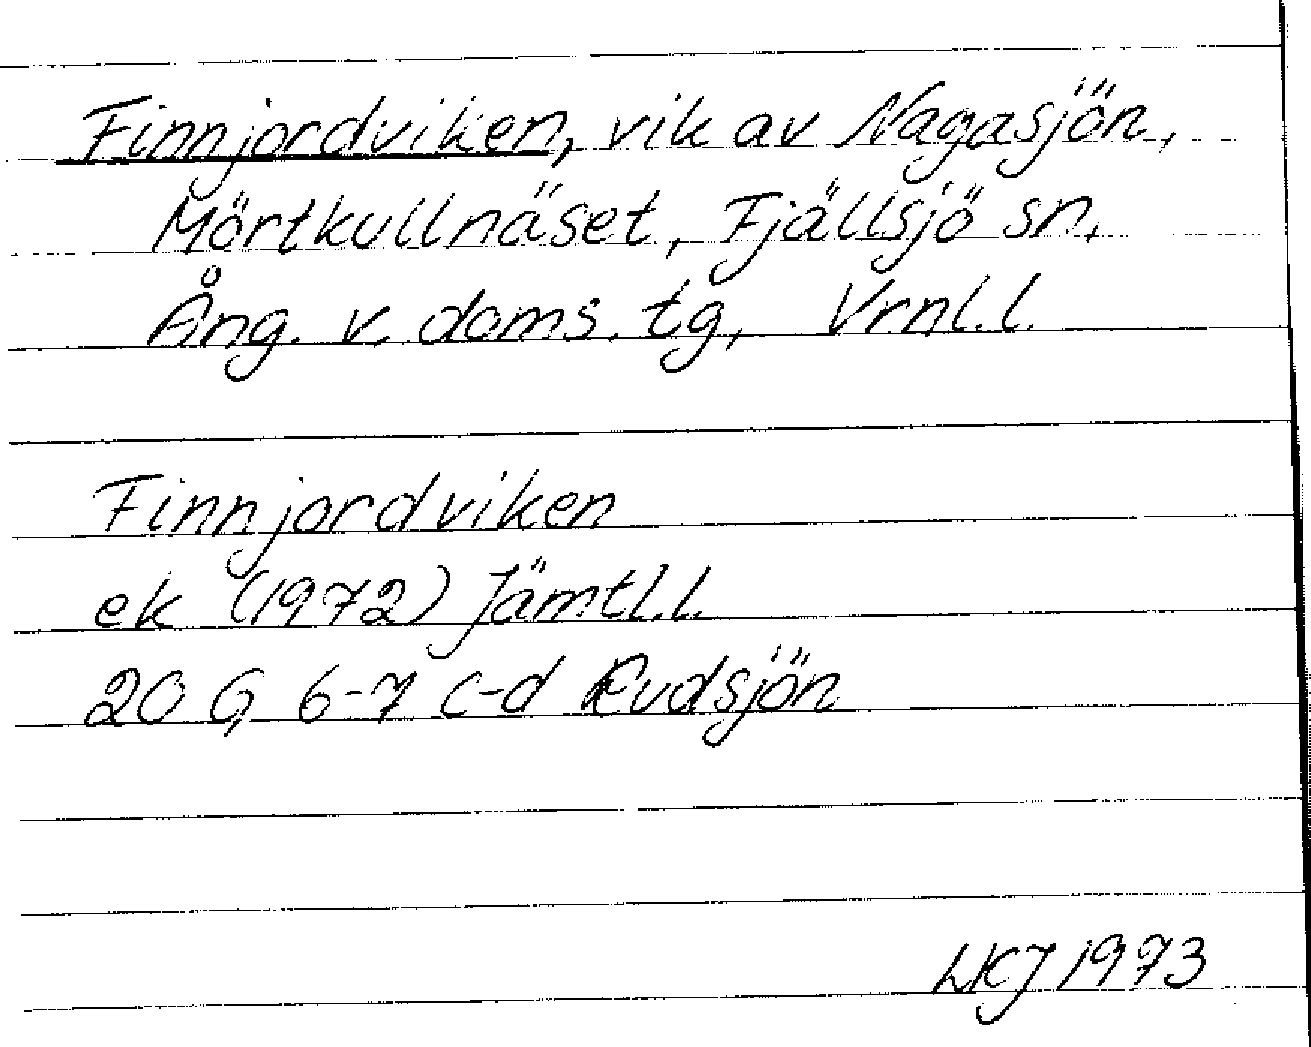 Finnjordviken, vik av Nagasjön,
Mörtkullnäset, Fjällsjö sn,
Ång. v. doms. tg, Vrnl.l.
Finnjordviken
ek (1972) Jämtl.l.
20 G 6-7 c-d Rudsjön
LKJ 1973